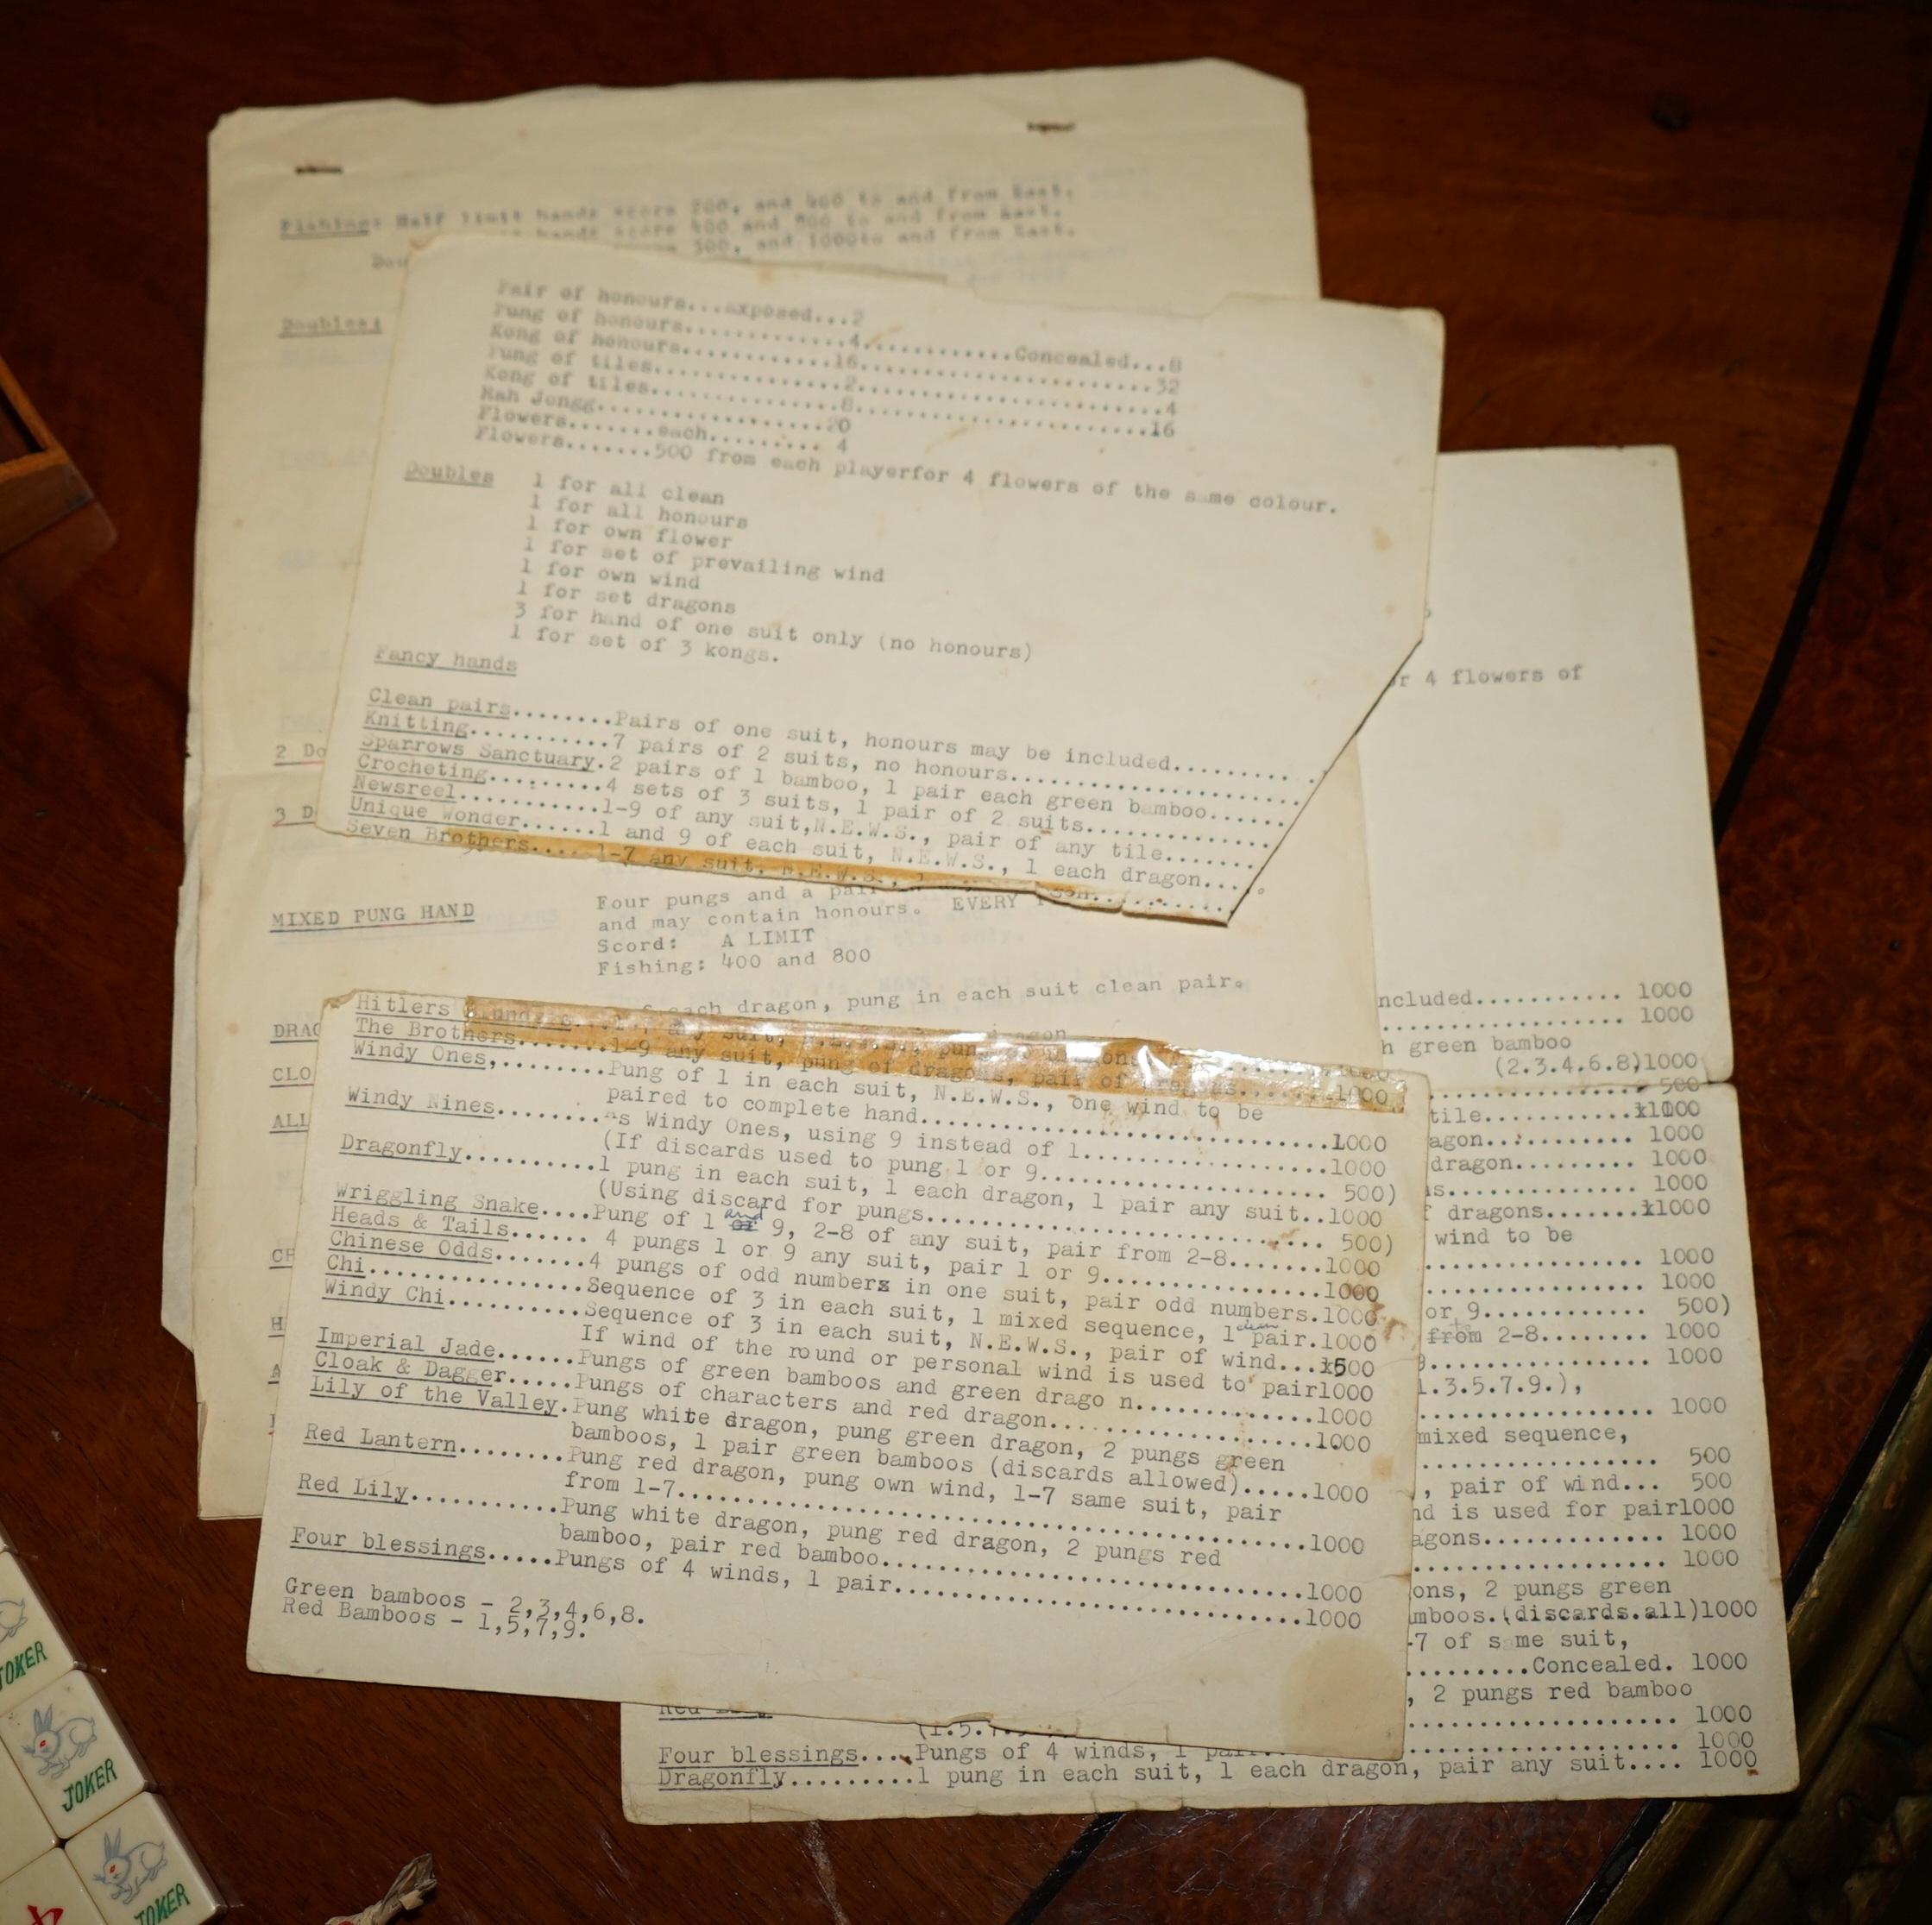 Fishing: Half limit hands score 200, and 400 to and from East.
hands score 400 and 800 to and from East.
500, and 1000to and from East.
Dou
Doubles:
2 Do
3 D
Pair of honours...exposed...2
Pung of honours............4............Concealed...8
Kong of honours............16.......................32
Pung of tiles...............2........................4
Kong of tiles...............8.......................16
Mah Jongg..................20
Flowers.......each......... 4
Flowers.......500 from each playerfor 4 flowers of the same colour.
Doubles 1 for all clean
1 for all honours
1 for own flower
1 for set of prevailing wind
1 for own wind
1 for set dragons
3 for hand of one suit only (no honours)
1 for set of 3 kongs.
Fancy hands
Clean pairs........Pairs of one suit, honours may be included.........
Knitting...........7 pairs of 2 suits, no honours.....................
Sparrows Sanctuary.2 pairs of 1 bamboo, 1 pair each green bamboo......
Crocheting.........4 sets of 3 suits, 1 pair of 2 suits...............
Newsreel...........1-9 of any suit,N.E.W.S., pair of any tile.......
Unique wonder......1 and 9 of each suit, N.E.W.S., 1 each dragon....
Seven Brothers.....1-7 any suit, N.E.W.S.,
MIXED PUNG HAND Four pungs and a pair
and may contain honours. EVERY
Scord: A LIMIT
Fishing: 400 and 800
DRAG each dragon, pung in each suit clean pair.
CLO
ALL
CH
H
A
Hitlers
The Brothers.......1-9 any suit, pung of dragons, pair of dragons.......1000
Windy Ones,........Pung of 1 in each suit, N.E.W.S., one wind to be
paired to complete hand..............................1000
Windy Nines........As Windy Ones, using 9 instead of 1..................1000
(If discards used to pung 1 or 9..................... 500)
Dragonfly..........1 pung in each suit, 1 each dragon, 1 pair any suit..1000
(Using discard for pungs............................. 500)
Wriggling Snake....Pung of 1 or and 9, 2-8 of any suit, pair from 2-8.......1000
Heads & Tails...... 4 pungs 1 or 9 any suit, pair 1 or 9................1000
Chinese Odds.......4 pungs of odd numbers in one suit, pair odd numbers.1000
Chi................Sequence of 3 in each suit, 1 mixed sequence, 1 clean pair.1000
Windy Chi..........Sequence of 3 in each suit, N.E.W.S., pair of wind...500
If wind of the round or personal wind is used to pair1000
Imperial Jade......Pungs of green bamboos and green drago n.............1000
Cloak & Dagger.....Pungs of characters and red dragon...................1000
Lily of the Valley.Pung white dragon, pung green dragon, 2 pungs green
bamboos, 1 pair green bamboos (discards allowed).....1000
Red Lantern........Pung red dragon, pung own wind, 1-7 same suit, pair
from 1-7.............................................1000
Red Lily...........Pung white dragon, pung red dragon, 2 pungs red
bamboo, pair red bamboo..............................1000
Four blessings.....Pungs of 4 winds, 1 pair.............................1000
Green bamboos - 2,3,4,6,8.
Red Bamboos - 1,5,7,9.
4 flowers of
ncluded........... 1000
................. 1000
h green bamboo
(2.3.4.6.8)1000
................. 500
tile.............1000
agon............ 1000
dragon.......... 1000
ns.............. 1000
f dragons........1000
wind to be
................ 1000
................ 1000
or 9............ 500)
from 2-8........ 1000
9............... 1000
1.3.5.7.9.),
................ 1000
mixed sequence,
................ 500
, pair of wind... 500
nd is used for pair1000
agons............. 1000
.................. 1000
ons, 2 pungs green
mboos.(discards.all)1000
-7 of same suit,
.........Concealed. 1000
, 2 pungs red bamboo
.................. 1000
Red Lily
Four blessings....Pungs of 4 winds, 1 pair.................. 1000
Dragonfly.........1 pung in each suit, 1 each dragon, pair any suit.... 1000
JOKER
JOKER
JOKER